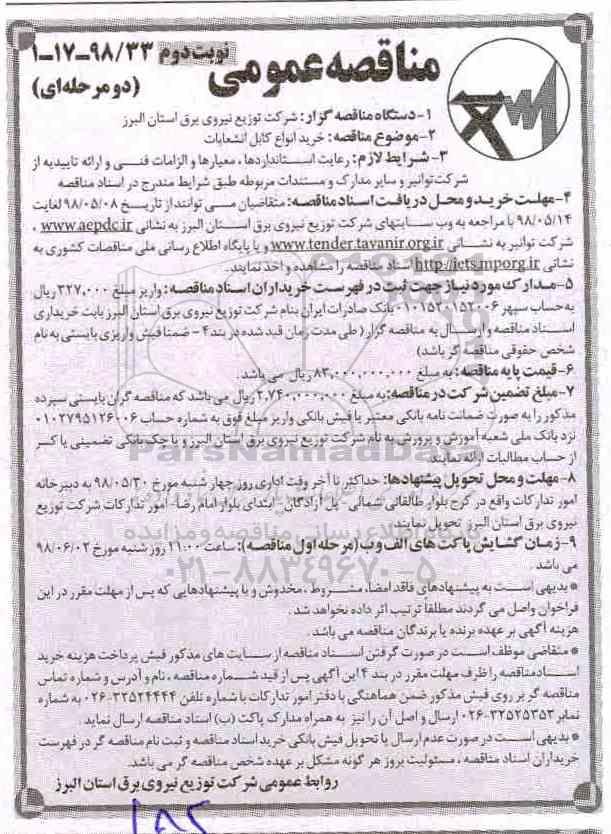 مناقصه عمومی نوبت دوم ۹۸/۳۳-۱۷-۱
(دو مرحله ای)
۱-دستگاه مناقصه گزار: شرکت توزیع نیروی برق استان البرز
۲-موضوع مناقصه: خرید انواع کابل انشعابات
۳-شرایط لازم: رعایت استانداردها، معیارها و الزامات فنی و ارائه تاییدیه از
شرکت توانیر و سایر مدارک و مستندات مربوطه طبق شرایط مندرج در اسناد مناقصه
۴-مهلت خرید و محل دریافت اسناد مناقصه: متقاضیان می توانند از تاریخ ۹۸/۰۵/۰۸ لغایت
۹۸/۰۵/۱۴ با مراجعه به وب سایتهای شرکت توزیع نیروی برق استان البرز به نشانی www.aepdc.ir ،
شرکت توانیر به نشانی www.tender.tavanir.org.ir و یا پایگاه اطلاع رسانی ملی مناقصات کشوری به
نشانی http://iets.mporg.ir اسناد مناقصه را مشاهده و اخذ نمایند.
۵-مدارک مورد نیاز جهت ثبت در فهرست خریداران اسناد مناقصه: واریز مبلغ ۳۲۷,۰۰۰ ریال
به حساب سپهر ۰۱۰۱۵۲۰۱۵۲۰۰۶ بانک صادرات ایران بنام شرکت توزیع نیروی برق استان البرز بابت خریداری
اسناد مناقصه و ارسال به مناقصه گزار (طی مدت زمان قید شده در بند ۴ - ضمنا فیش واریزی بایستی به نام
شخص حقوقی مناقصه گر باشد)
۶-قیمت پایه مناقصه: به مبلغ ۸۳,۰۰۰,۰۰۰,۰۰۰ ریال می باشد.
۷-مبلغ تضمین شرکت در مناقصه: به مبلغ ۲,۷۴۰,۰۰۰,۰۰۰ ریال می باشد که مناقصه گران بایستی سپرده
مذکور را به صورت ضمانت نامه بانکی معتبر یا فیش بانکی واریز مبلغ فوق به شماره حساب ۰۱۰۲۷۹۵۱۲۶۰۰۶
نزد بانک ملی شعبه آموزش و پرورش به نام شرکت توزیع نیروی برق استان البرز و یا چک بانکی تضمینی یا کسر
از حساب مطالبات ارائه نمایند.
۸-مهلت و محل تحویل پیشنهادها: حداکثر تا آخر وقت اداری روز چهار شنبه مورخ ۹۸/۰۵/۳۰ به دبیرخانه
امور تدارکات واقع در کرج بلوار طالقانی شمالی- پل آزادگان - ابتدای بلوار امام رضا- امور تدارکات شرکت توزیع
نیروی برق استان البرز تحویل نمایند.
۹-زمان گشایش پاکت های الف و ب (مرحله اول مناقصه): ساعت ۱۱:۰۰ روز شنبه مورخ ۹۸/۰۶/۰۲
می باشد.
* بدیهی است به پیشنهادهای فاقد امضاء، مشروط، مخدوش و یا پیشنهادهایی که پس از مهلت مقرر در این
فراخوان واصل می گردند مطلقا ترتیب اثر داده نخواهد شد.
هزینه آگهی بر عهده برنده یا برندگان مناقصه می باشد.
* متقاضی موظف است در صورت گرفتن اسناد مناقصه از سایت های مذکور فیش پرداخت هزینه خرید
اسناد مناقصه را ظرف مهلت مقرر در بند ۴ این آگهی پس از قید شماره مناقصه، نام و آدرس و شماره تماس
مناقصه گر بر روی فیش مذکور ضمن هماهنگی با دفتر امور تدارکات با شماره تلفن ۳۲۵۲۴۴۴۴-۰۲۶ به شماره
نمابر ۳۲۵۲۵۳۵۳-۰۲۶ ارسال و اصل آن را نیز به همراه مدارک پاکت (ب) اسناد مناقصه ارسال نماید.
* بدیهی است در صورت عدم ارسال یا تحویل فیش بانکی خرید اسناد مناقصه و ثبت نام مناقصه گر در فهرست
خریداران اسناد مناقصه، مسئولیت بروز هر گونه مشکل بر عهده شخص مناقصه گر می باشد.
روابط عمومی شرکت توزیع نیروی برق استان البرز
ParsNamadData
۰۲۱-۸۸۳۴۹۶۷۰-۵